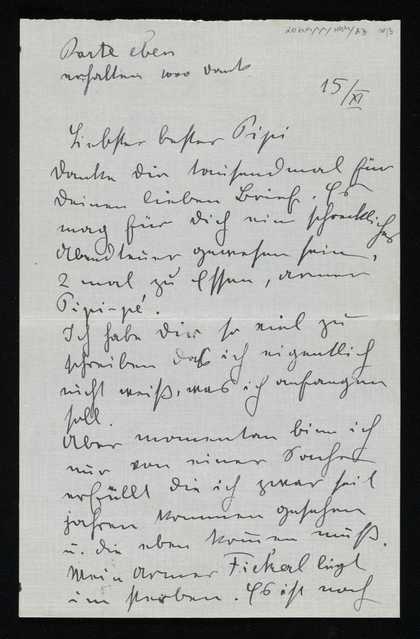 Karte eben
erhalten 1000 Dank
15/XI
Liebster bester Pipi
Danke dir tausendmal für
deinen lieben Brief. Es
mag für dich ein schreckliches
Abenteuer gewesen sein,
2 mal zu Essen, armer
Pipi-pé.
Ich habe dir so viel zu
schreiben daß ich eigentlich
nicht weiß, was ich anfangen
soll.
Aber momentan bin ich
nur von einer Sache
erfüllt die ich zwar seit
Jahren kommen gesehen
u. die eben kom̄en muß.
Mein armer Fickerl liegt
im sterben. Es ist noch